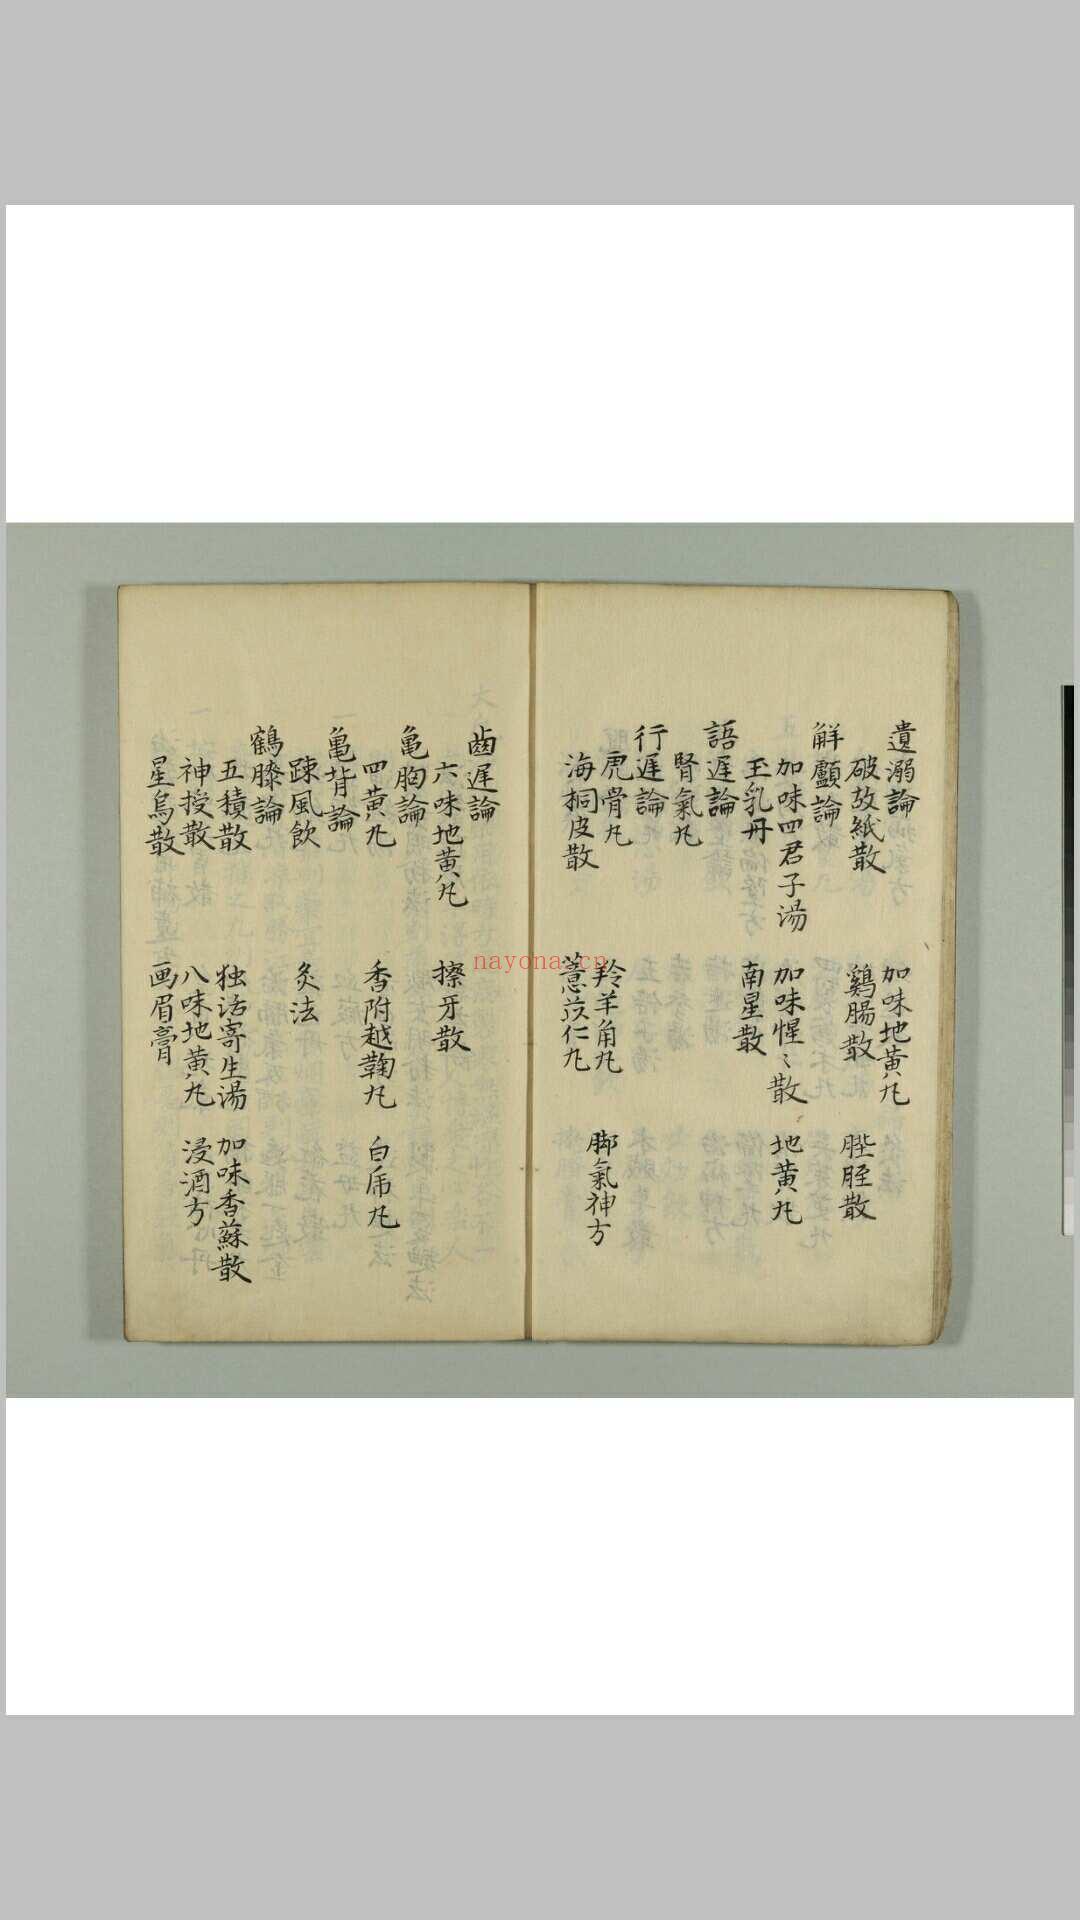 遺溺論
加味地黄丸
破故紙散
鷄腸散
䏶胵散
解顱論
加味四君子湯
加味惺〻散
地黄丸
玉乳丹
南星散
語遲論
腎氣丸
行遲論
虎骨丸
羚羊角丸
脚氣神方
海桐皮散
薏苡仁丸
齒遲論
六味地黄丸
擦牙散
亀胸論
四黄丸
香附越鞠丸
白虎丸
亀背論
踈風飲
灸法
鶴膝論
五積散
独活寄生湯
加味香蘇散
神授散
八味地黄丸
浸酒方
星烏散
画眉膏
nayona.cn